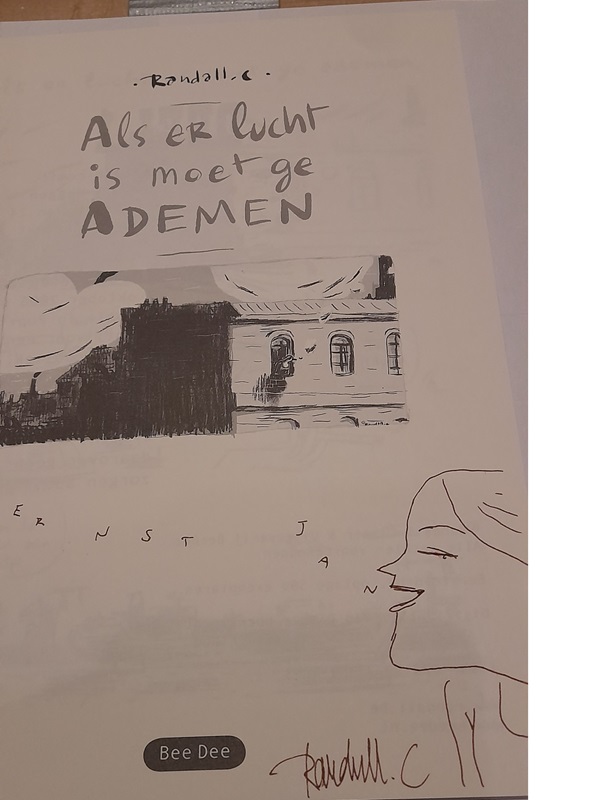 · Randall.c ·
Als er lucht
is moet ge
ADEMEN
ERNST JAN
Bee Dee
Randall.C